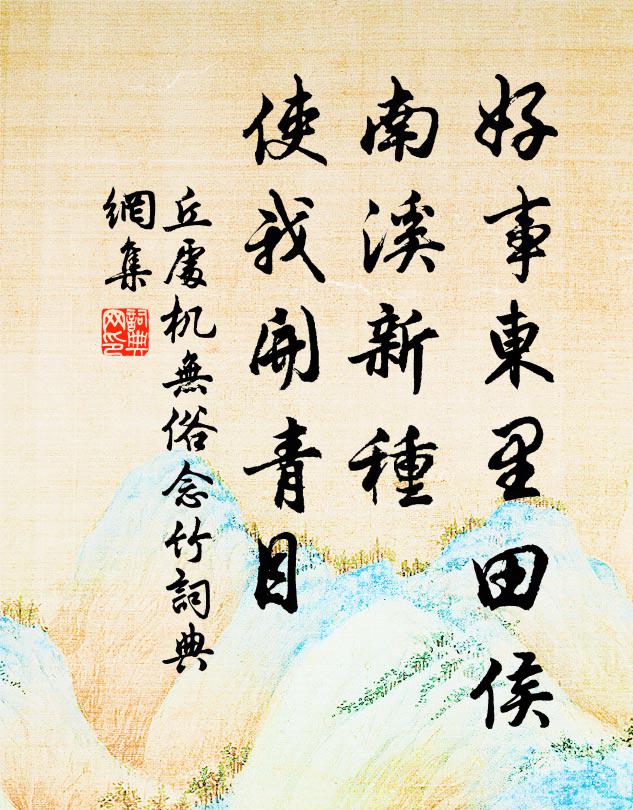 好事東里田侯
南溪新種
使我開青目
丘處机無俗念竹詞典
網集
詞典
网印